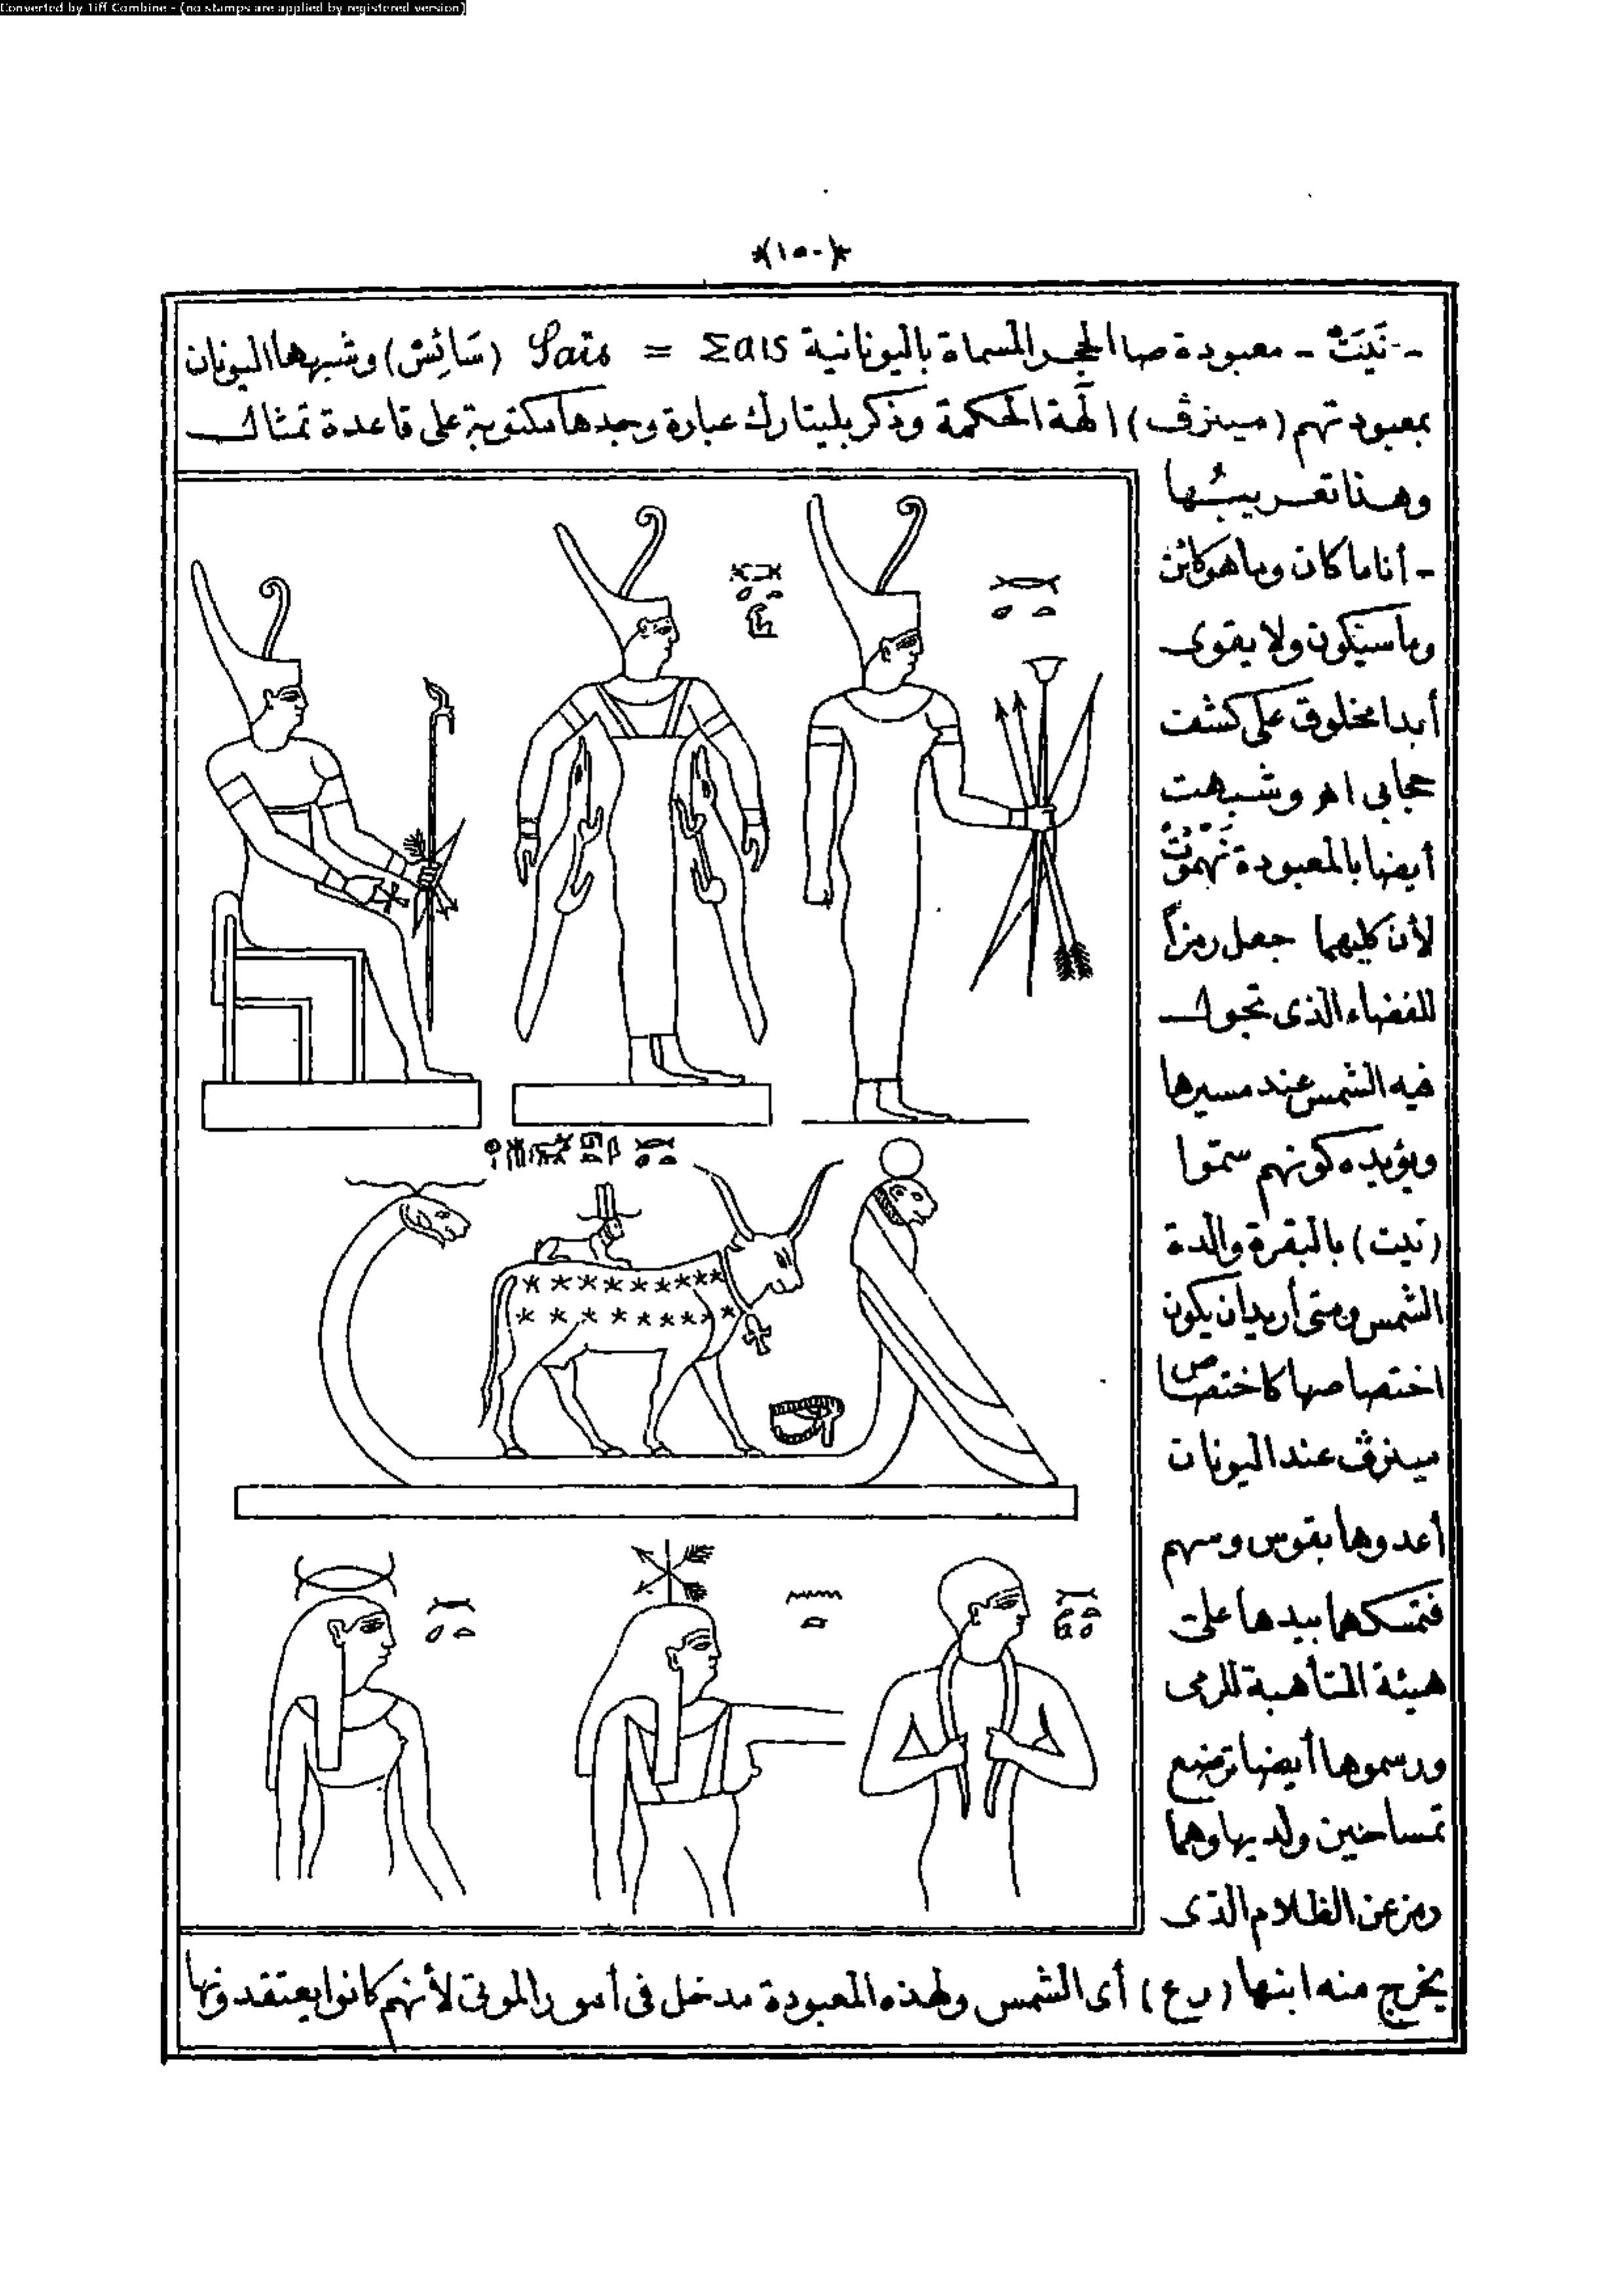 Converted by Tiff Combine - (no stamps are applied by registered version)
*(١٥٠)*
- نَيتْ - معبودة صا الحجر المسماة باليونانية Σαις = Saïs (سَائِسْ) وشبهها اليونان
بمعبودتهم (مينرڤ) آلهة الحكمة وذكر بليتارك عبارة وجدها مكتوبة على قاعدة تمثال
وهذا تعريبُها
- أنا ما كان وما هو كائن
وما سيكون ولا يقوى
أبدا مخلوق على كشف
حجابى اهر وشبهت
أيضا بالمعبودة
لأن كليهما جعل رمزاً
للفضاء الذى تجول
فيه الشمس عند مسيرها
ويؤيده كونهم سمّوا
(نيت) بالبقرة والدة
الشمس ومتى أريد أن يكون
اختصاصها كاختصاص
مينرڤ عند اليونان
أعدوها بقوس وسهم
فتمسكهما بيدها على
هيئة المتأهبة للرمى
ورسموها أيضا ترضع
تمساحين ولديها وهما
رمز عن الظلام الذى
يخرج منه ابنها (رع) أى الشمس ولهذه المعبودة مدخل فى أمور الموتى لأنهم كانوا يعتقدونها